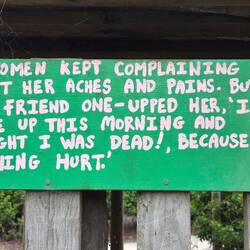 OMEN KEPT COMPLAINING
T HER ACHES AND PAINS. BU
FRIEND ONE-UPPED HER, 'I
E UP THIS MORNING AND
GHT I WAS DEAD!, BECAUSE
HING HURT.'